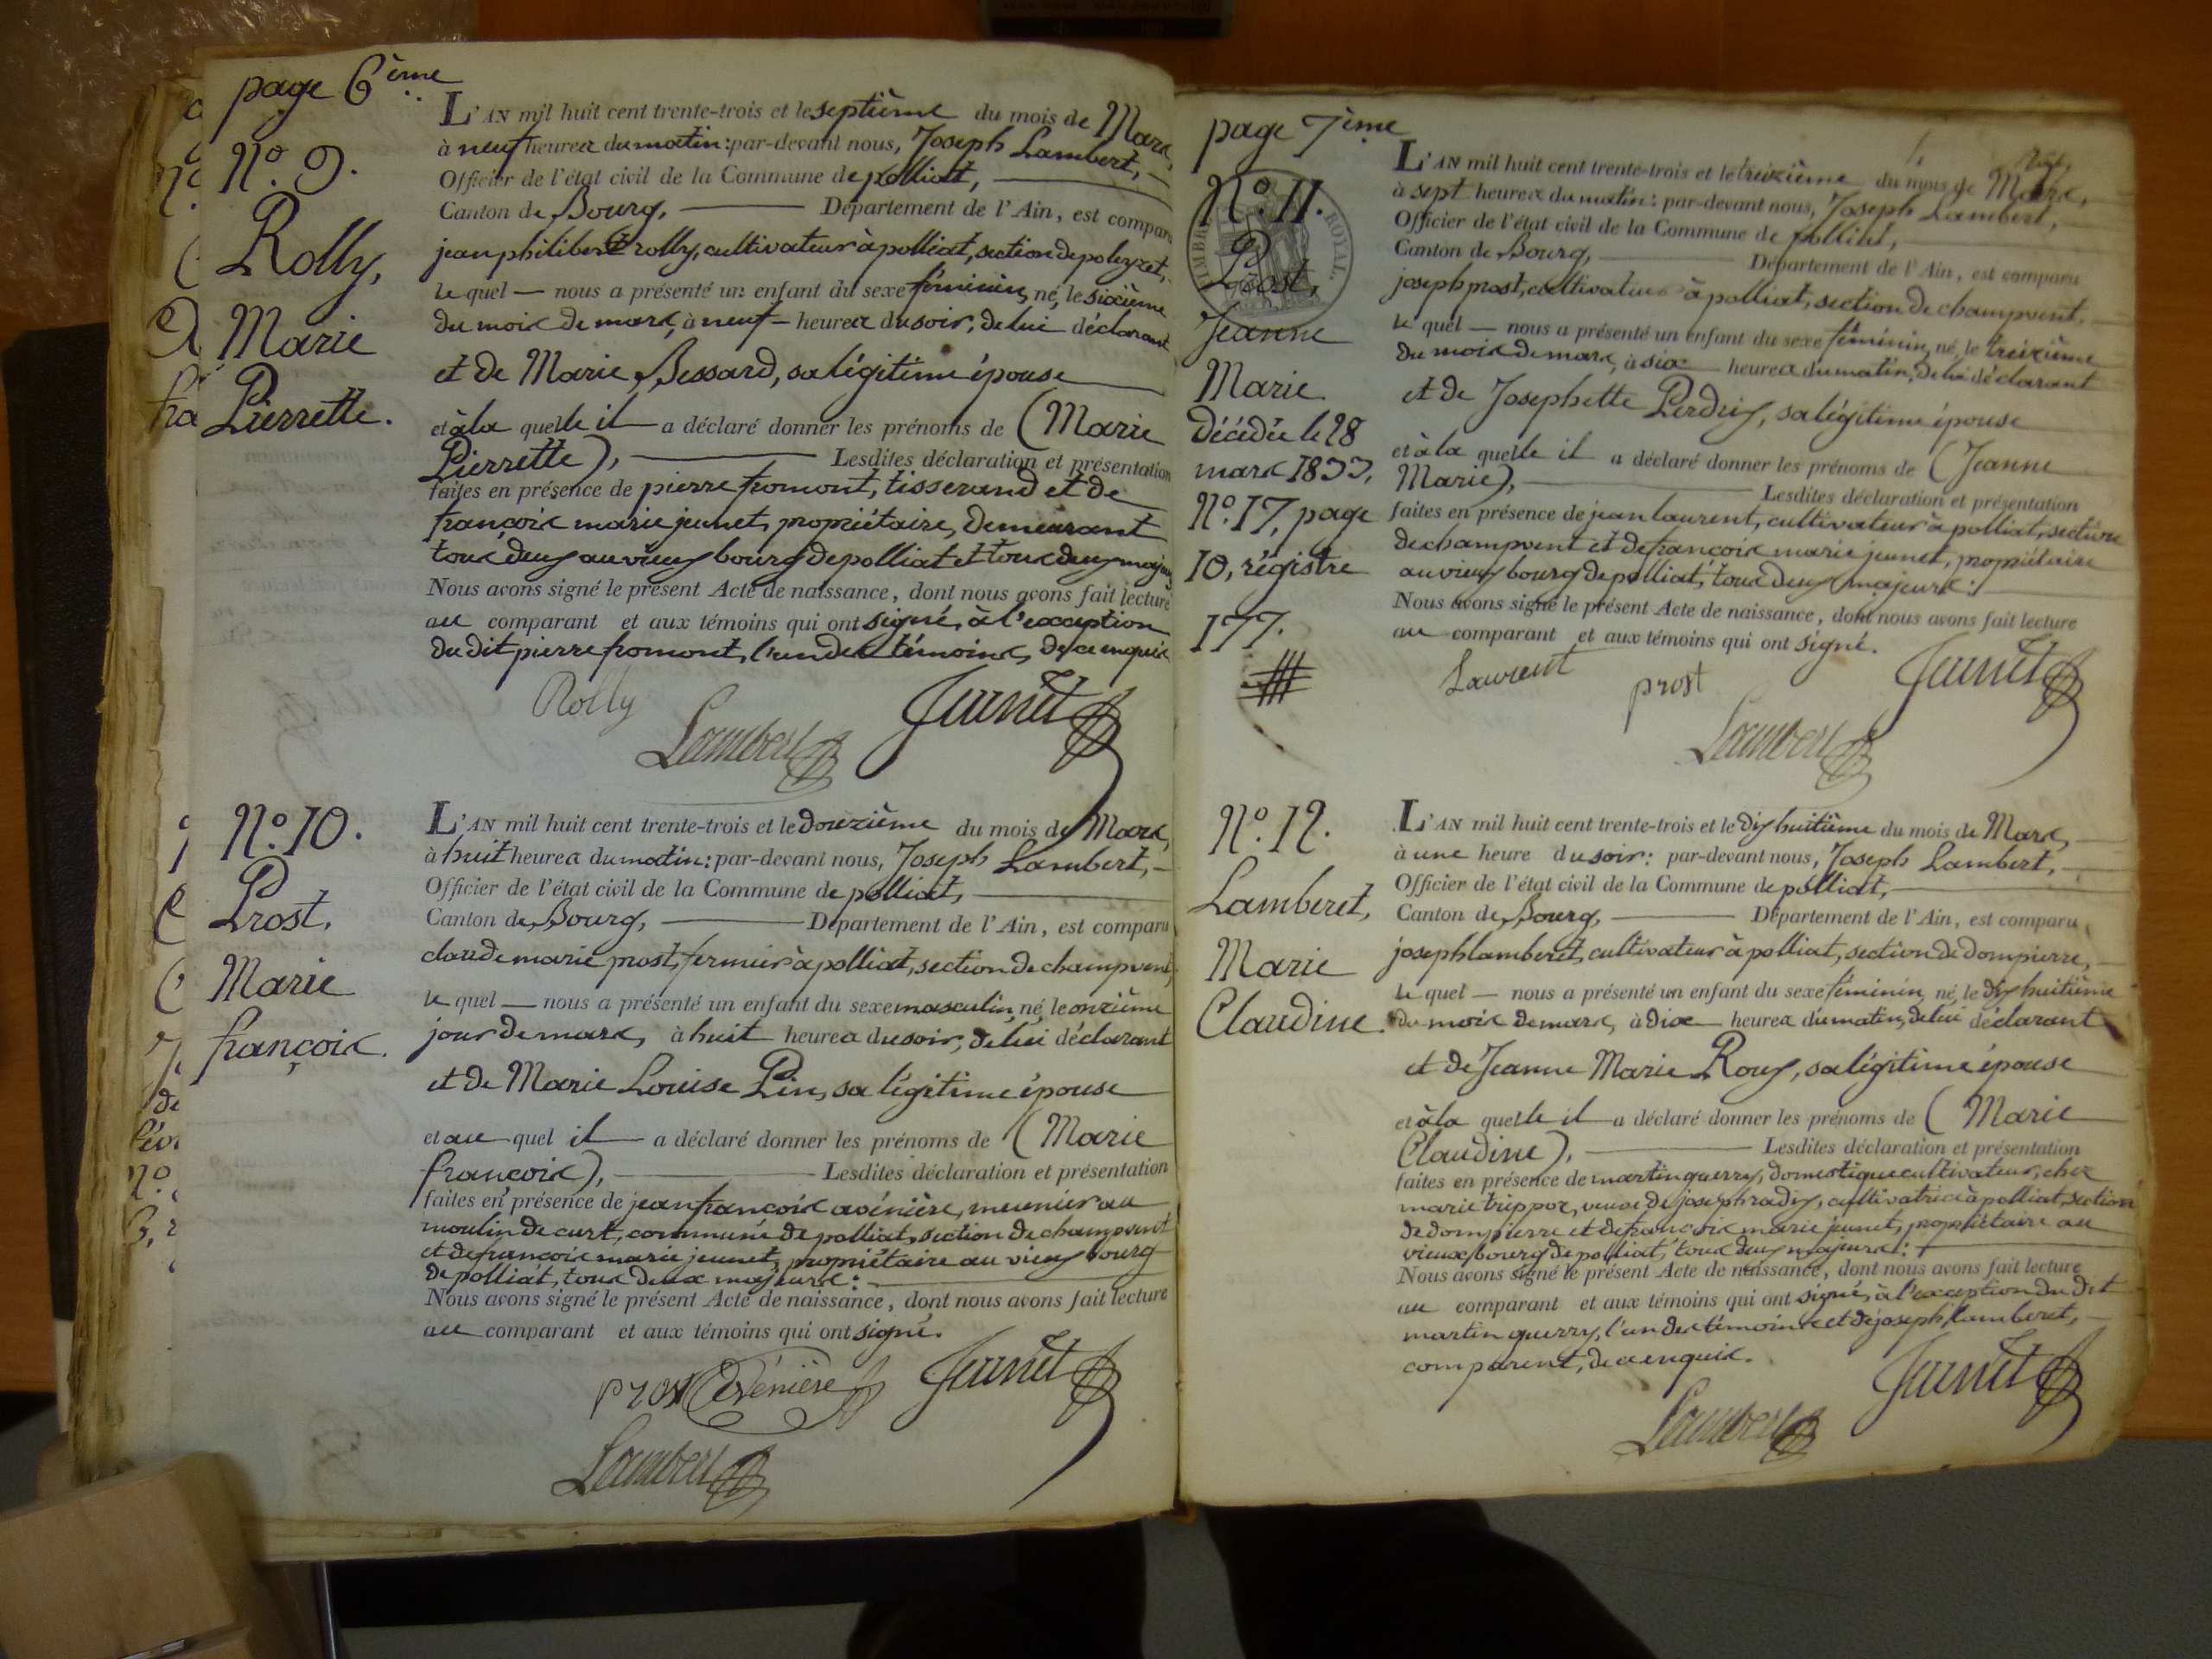 page 6ème
N.º 9.
Rolly,
Marie
Pierrette.
L'AN mil huit cent trente-trois et le septième du mois de Mars,
à neuf heures du matin: par-devant nous, Joseph Lambert,
Officier de l'état civil de la Commune de polliat,
Canton de Bourg, Département de l'Ain, est comparu
jean philibert rolly, cultivateur à polliat, section de poleyzet,
le quel nous a présenté un enfant du sexe féminin, né, le sixième
du mois de mars, à neuf heures du soir, de lui déclarant
et de Marie Bessard, sa légitime épouse
et à la quelle il a déclaré donner les prénoms de (Marie
Pierrette), Lesdites déclaration et présentation
faites en présence de pierre fromont, tisserand et de
françois marie jeunet, propriétaire, demeurant
tous deux au vieux bourg de polliat et tous deux majeurs
Nous avons signé le présent Acte de naissance, dont nous avons fait lecture
au comparant et aux témoins qui ont signé, à l'exception
du dit pierre fromont, l'un des témoins, de ce enquis
Rolly
Lambert
Jeunet
N.º 10.
Prost,
Marie
françois.
L'AN mil huit cent trente-trois et le douzième du mois de Mars,
à huit heures du matin: par-devant nous, Joseph Lambert,
Officier de l'état civil de la Commune de polliat,
Canton de Bourg, Département de l'Ain, est comparu
claude marie prost, fermier à polliat, section de champvent,
le quel nous a présenté un enfant du sexe masculin, né, le onzième
jour de mars, à huit heures du soir, de lui déclarant
et de Marie Louise Pin, sa légitime épouse
et au quel il a déclaré donner les prénoms de (Marie
françois), Lesdites déclaration et présentation
faites en présence de jean françois avénière, meunier au
moulin de curt, commune de polliat, section de champvent
et de françois marie jeunet, propriétaire au vieux bourg
de polliat, tous deux majeurs:
Nous avons signé le présent Acte de naissance, dont nous avons fait lecture
au comparant et aux témoins qui ont signé.
prost Avénière Jeunet
Lambert
page 7ème
N.º 11.
TIMBRE ROYAL
Prost,
Jeanne
Marie
Décédée le 28
mars 1833,
N.º 17, page
10, régistre
177.
L'AN mil huit cent trente-trois et le treizième du mois de Mars,
à sept heures du matin: par-devant nous, Joseph Lambert,
Officier de l'état civil de la Commune de polliat,
Canton de Bourg, Département de l'Ain, est comparu
joseph prost, cultivateur à polliat, section de champvent,
le quel nous a présenté un enfant du sexe féminin, né, le treizième
du mois de mars, à six heures du matin, de lui déclarant
et de Josephette Perdrix, sa légitime épouse
et à la quelle il a déclaré donner les prénoms de (Jeanne
Marie), Lesdites déclaration et présentation
faites en présence de jean laurent, cultivateur à polliat, section
de champvent et de françois marie jeunet, propriétaire
au vieux bourg de polliat, tous deux majeurs:
Nous avons signé le présent Acte de naissance, dont nous avons fait lecture
au comparant et aux témoins qui ont signé.
Laurent prost Jeunet
Lambert
N.º 12.
Lamberet,
Marie
Claudine.
L'AN mil huit cent trente-trois et le dix huitième du mois de Mars,
à une heure du soir: par-devant nous, Joseph Lambert,
Officier de l'état civil de la Commune de polliat,
Canton de Bourg, Département de l'Ain, est comparu
joseph lamberet, cultivateur à polliat, section de dompierre,
le quel nous a présenté un enfant du sexe féminin, né, le dix huitième
du mois de mars, à dix heures du matin, de lui déclarant
et de Jeanne Marie Roux, sa légitime épouse
et à la quelle il a déclaré donner les prénoms de (Marie
Claudine), Lesdites déclaration et présentation
faites en présence de martin guerry, domestique cultivateur, chez
marie trippoz, veuve de joseph radix, cultivatrice à polliat, section
de dompierre et de françois marie jeunet, propriétaire au
vieux bourg de polliat, tous deux majeurs:
Nous avons signé le présent Acte de naissance, dont nous avons fait lecture
au comparant et aux témoins qui ont signé, à l'exception du dit
martin guerry, l'un des témoins et de joseph lamberet,
comparent, de ce enquis.
Jeunet
Lambert